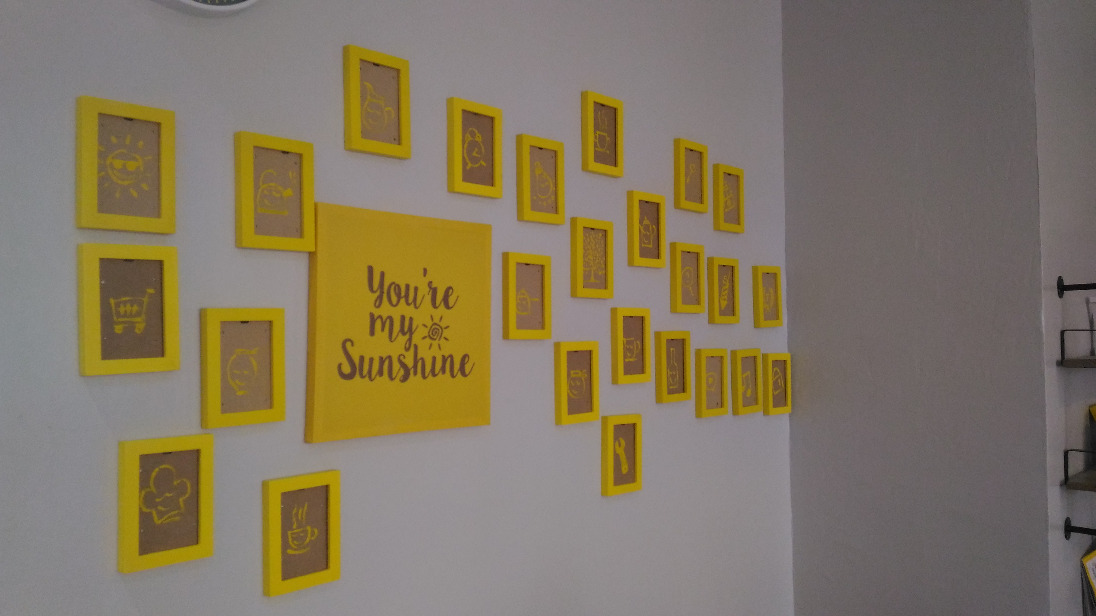 You're
my
Sunshine